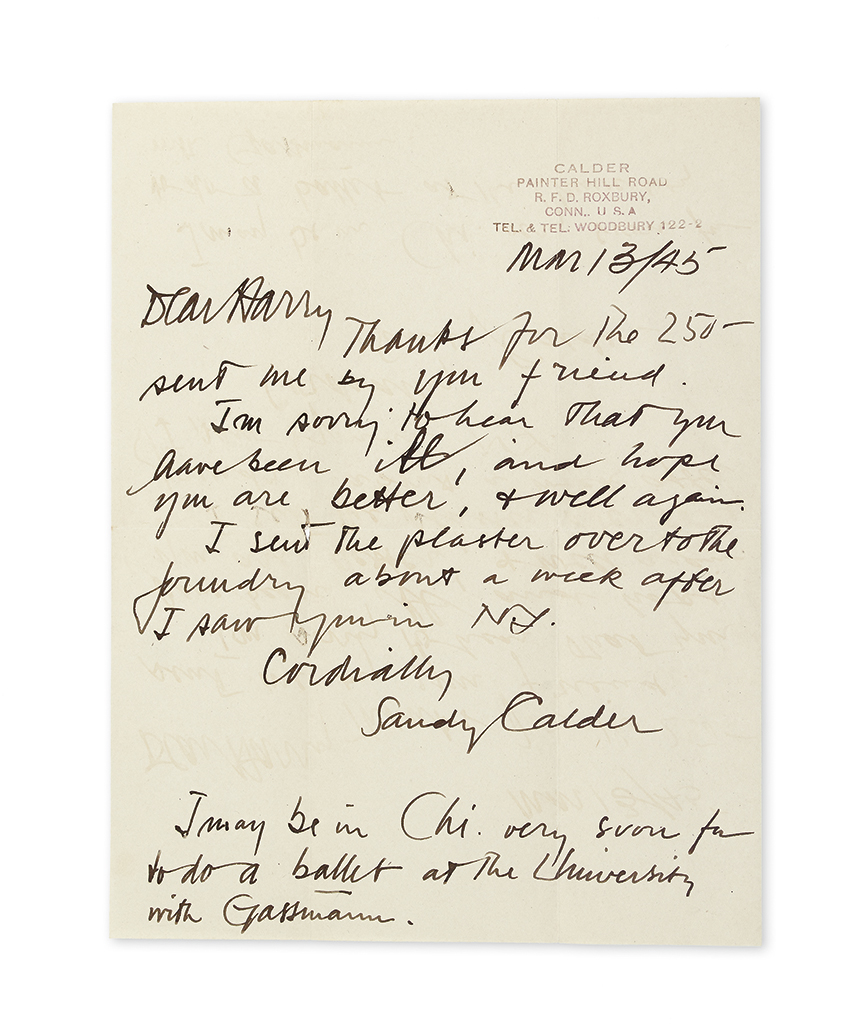 CALDER
PAINTER HILL ROAD
R. F. D. ROXBURY,
CONN., U S. A
TEL. & TEL. WOODBURY 122-2
Mar 13/45
Dear Harry
Thanks for the 250—
sent me by your friend.
I'm sorry to hear that you
have been ill, and hope
you are better, & well again.
I sent the plaster over to the
foundry about a week after
I saw you in NY.
Cordially
Sandy Calder
I may be in Chi. very soon for
to do a ballet at the University
with Gassmann.